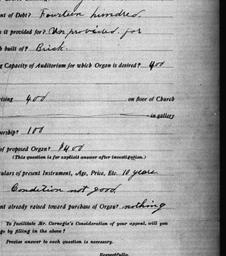 nt of Debt? Fourteen hundred.
s it provided for? Unprovided for
h built of? Brick.
g Capacity of Auditorium for which Organ is desired? 400
rising 400 on floor of Church
in gallery
ership? 100
of proposed Organ? $1400
(This question is for explicit answer after investigation.)
culars of present Instrument, Age, Price, Etc. 10 years
Condition not good
nt already raised toward purchase of Organ? nothing
To facilitate Mr. Carnegie's Consideration of your appeal, will you
ge by filling in the above?
Precise answer to each question is necessary.
Respectfully,